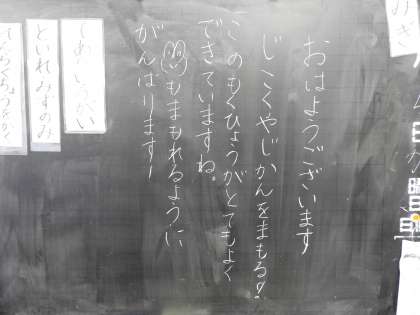 おはようございます
じこくやじかんをまもる!
このもくひょうがとてもよく
できていますね。
もまもれるように
がんばります!
てあらいうがい
といれみずのみ
曜日
日